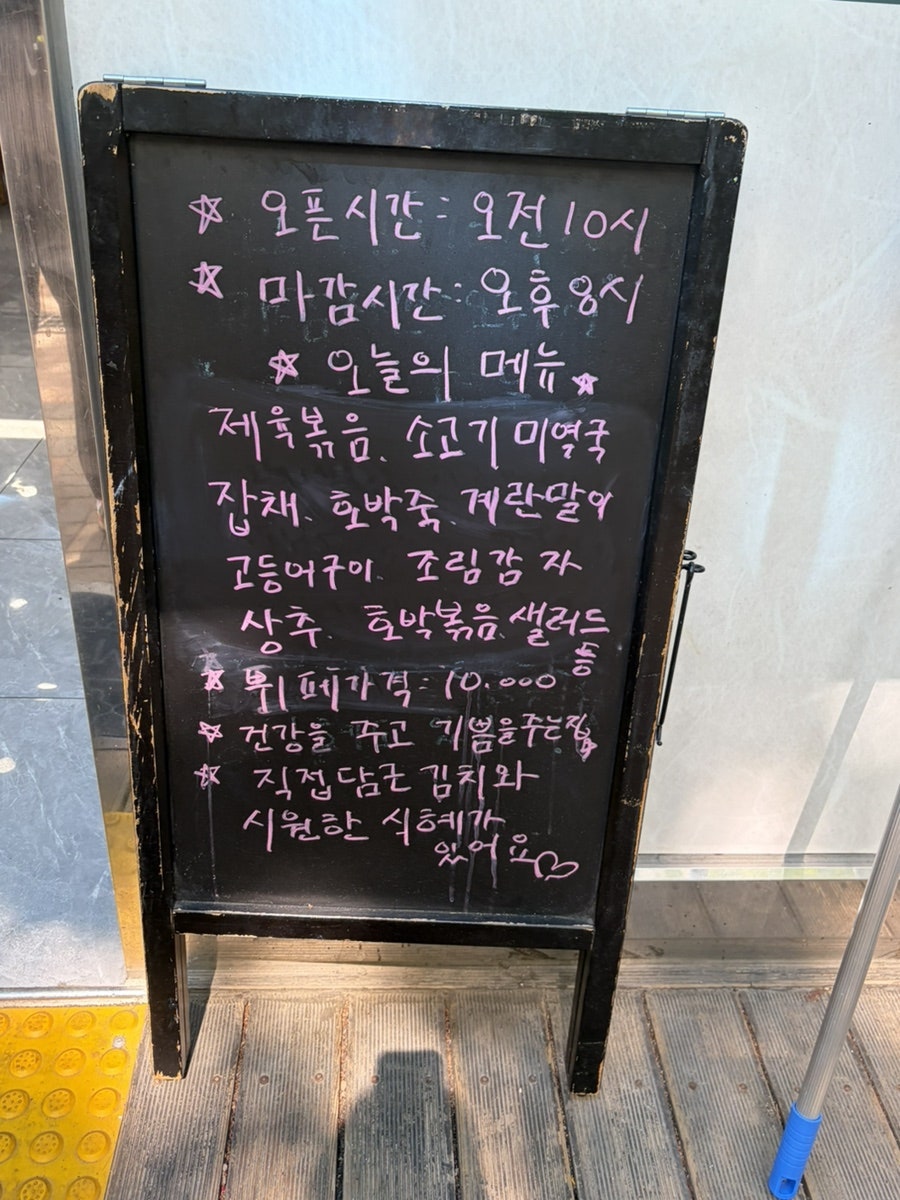 ☆ 오픈시간: 오전 10시
☆ 마감시간: 오후 8시
☆ 오늘의 메뉴 ☆
제육볶음. 소고기 미역국
잡채. 호박죽. 계란말이
고등어구이. 조림감자
상추. 호박볶음. 샐러드
등
☆ 뷔페가격: 10.000
☆ 건강을 주고 기쁨을주는집
☆ 직접담근 김치와
시원한 식혜가
있어요♡